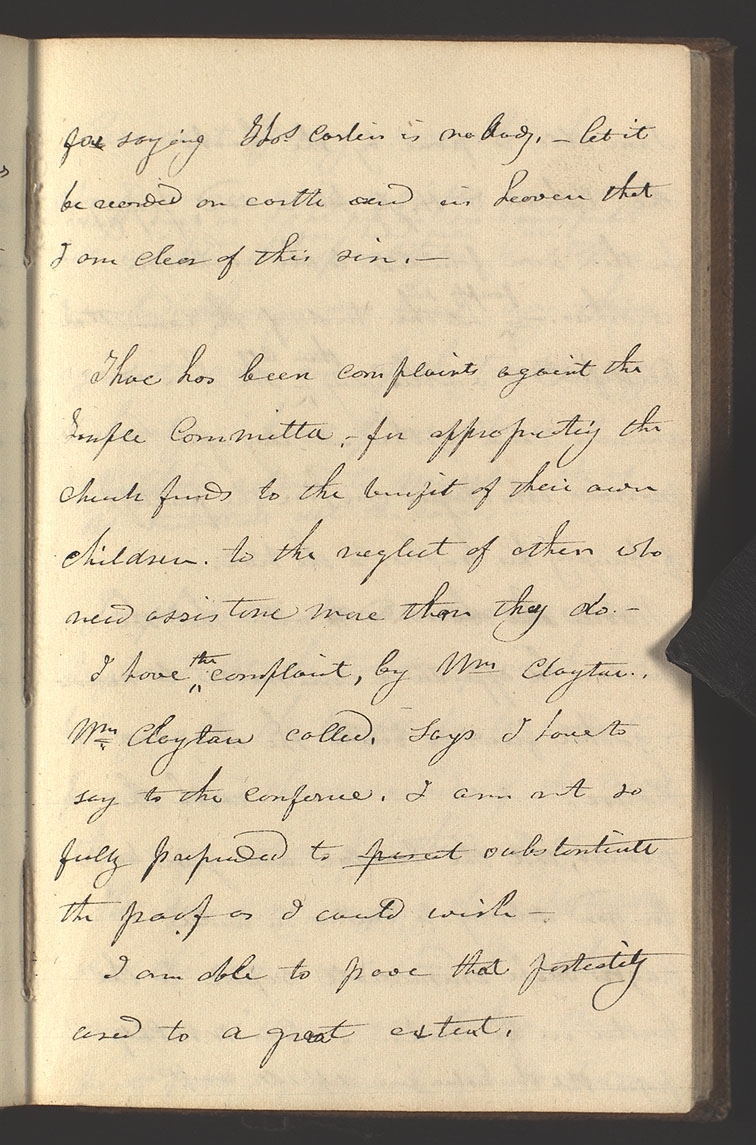 for saying Thos. Carlin is nobody. — let it
be recorded on earth and in heaven that
I am clear of this sin. —
Thee has been complaints against the
Temple Committee, - for appropriatig the
chuch funds to the benifit of their own
children. to the neglect of others who
need assistane more than they do. —
I have the complaint, by Wm Clayton.,
Wm Clayton called. Says I have to
say to the conferne. I am not so
fully prepaired to substantiate
the proof as I could wish —
I am able to prove that
used to a great extent.